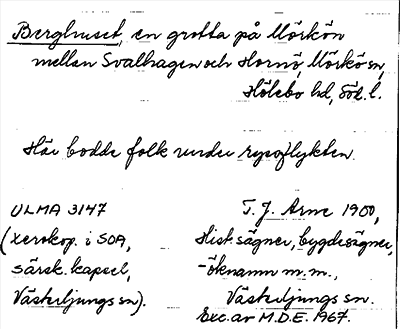 Berghuset, en grotta på Mörkön
mellan Svalhagen och Hornö, Mörkö sn,
Hölebo hd, Söd. l.
Här bodde folk under rysoflykten.
ULMA 3147
(xerokop. i SOA,
särsk. kapsel,
Västerljungs sn).
T. J. Arne 1900,
Hist. sägner, bygdesägner,
-öknamn m.m.,
Västerljungs sn.
Exc. av M.D.E. 1967.